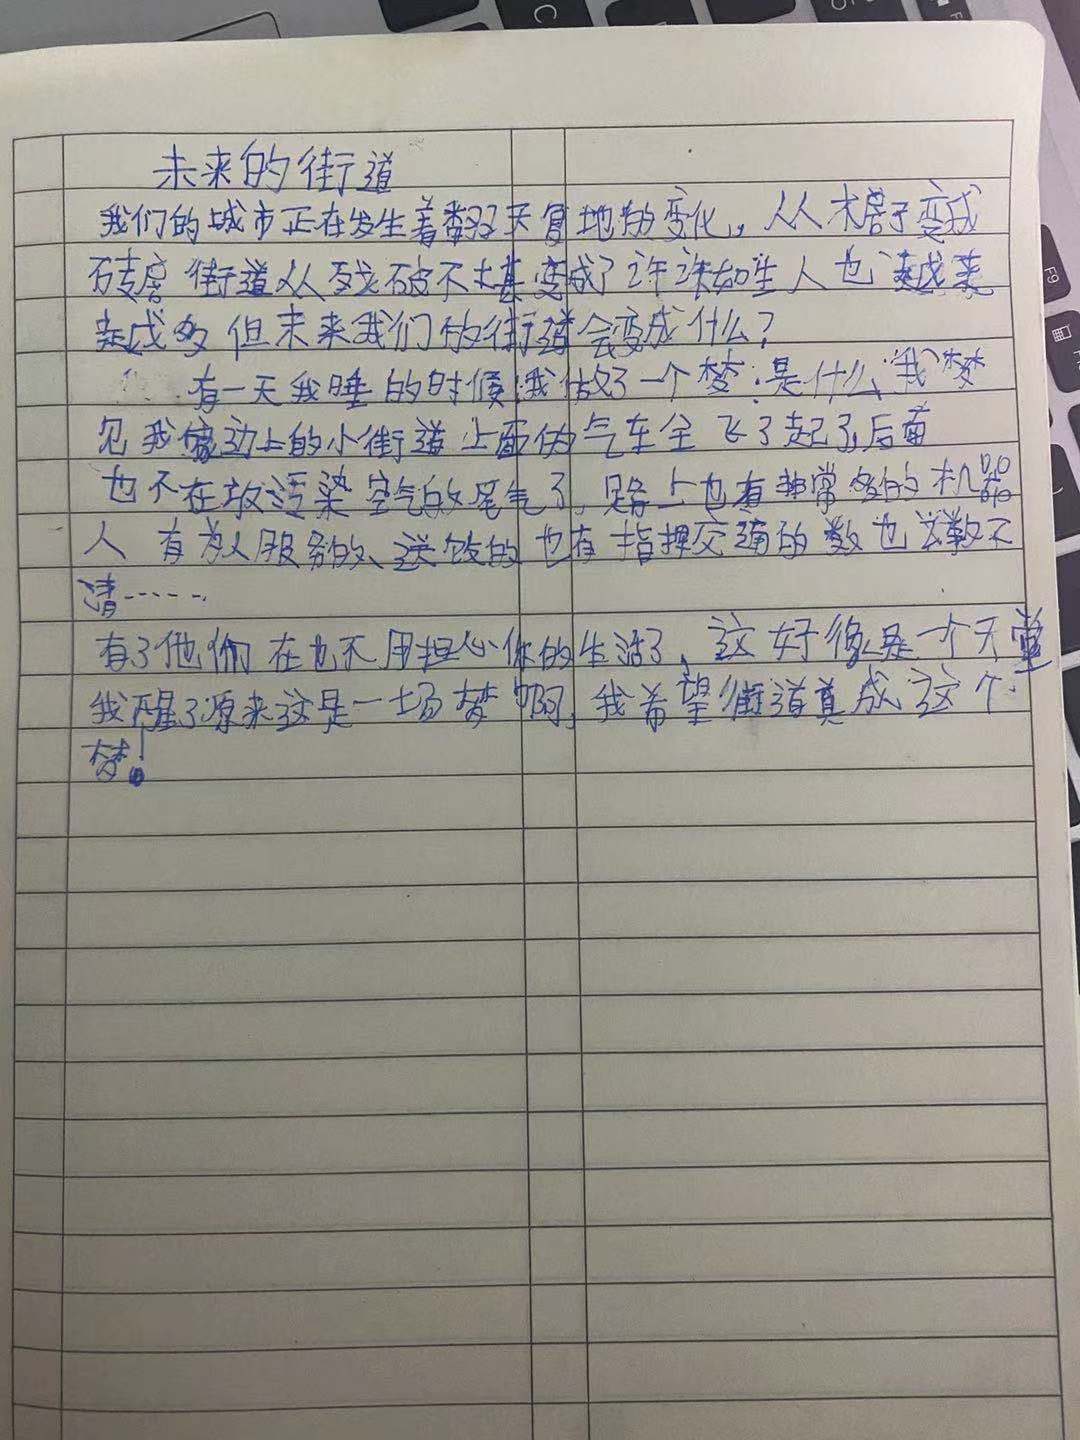 未来的街道
我们的城市正在发生着翻天复地的变化，从木房子变成
砖房 街道从残破不堪变成了许许如生人也越来
越多 但未来我们的街道会变成什么？
有一天我睡的时候，我做了一个梦，是什么，我梦
见我家边上的小街道上面的气车全飞了起了，后面
也不在放污染空气的尾气了，路上也有非常多的机器
人 有为人服务的、送饭的也有指挥交通的数也数不
清……
有了他们在也不用担心你的生活了，这好像是一个天堂
我醒了原来这是一场梦啊，我希望街道真成这个
梦！